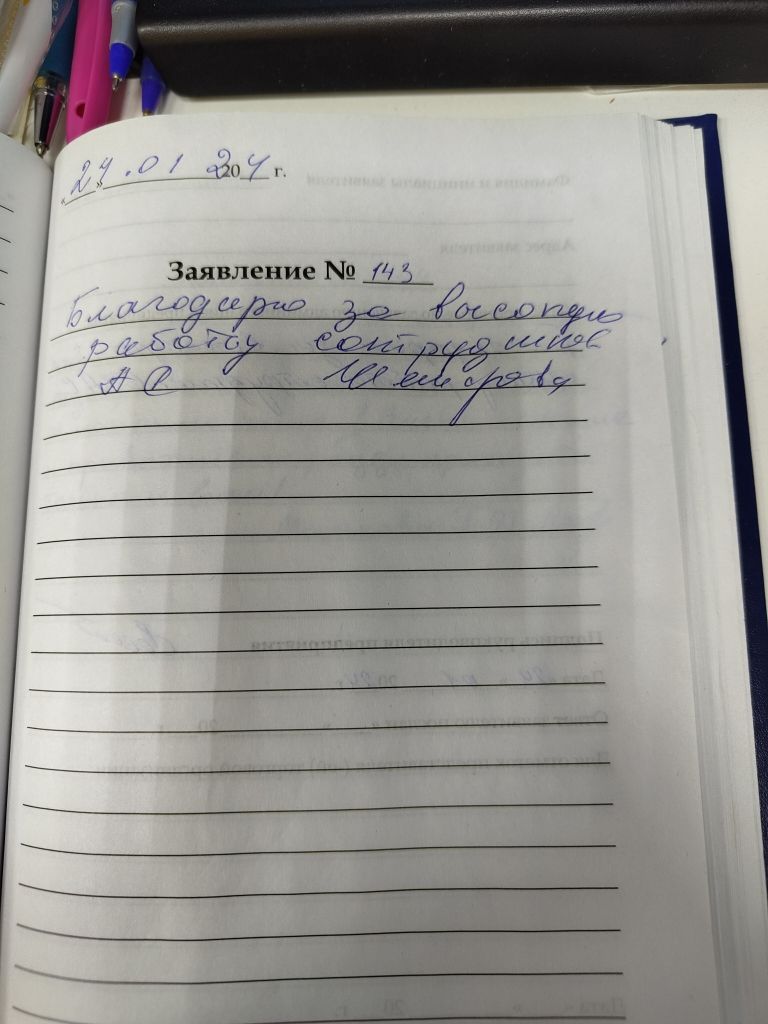 «27» .01 2024 г.
Заявление № 143
Благодарю за высокую
работу сотрудников
АС